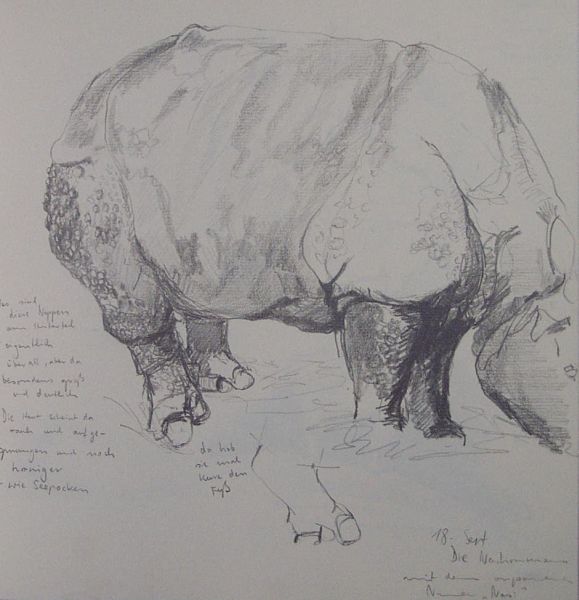 sind
diese Noppen
am Hinterteil
eigentlich
überall, aber da
besonders groß
und deutlich
Die Haut scheint da
rauh und aufge-
sprungen und noch
horniger
- wie Seepocken
da hob
sie mal
kurz den
Fuß
18. Sept
Die
mit dem
Namen „Nasi"